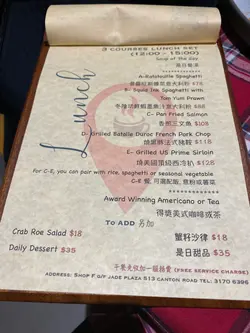 3 COURSES LUNCH SET
(12:00 - 15:00)
Soup of the Day
是日餐湯
Lunch
A-Ratatouille Spaghetti
$78
B- Squid Ink Spaghetti with
Tom Yum Prawn
$88
C- Pan Fried Salmon
香煎三文魚 $108
D- Grilled Batalle Duroc French Pork Chop
$118
E- Grilled US Prime Sirloin
燒美國頂級西冷扒 $128
For C-E, you can pair with rice, spaghetti or seasonal vegetable
C-E 餐, 可選配飯, 意粉或蕃菜
Award Winning Americano or Tea
得獎美式咖啡或茶
To ADD 另加
Crab Roe Salad $18 蟹籽沙律 $18
Daily Dessert $35 是日甜品 $35
(FREE SERVICE CHARGE)
ADDRESS: SHOP F G/F JADE PLAZA 513 CANTON ROAD TEL: 3170 6396